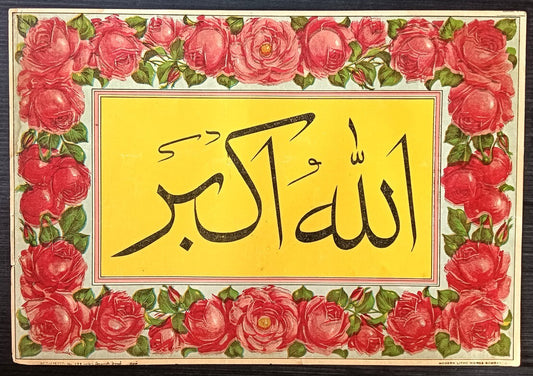 الله اكبر
MODERN LITHO WORKS BOMBAY